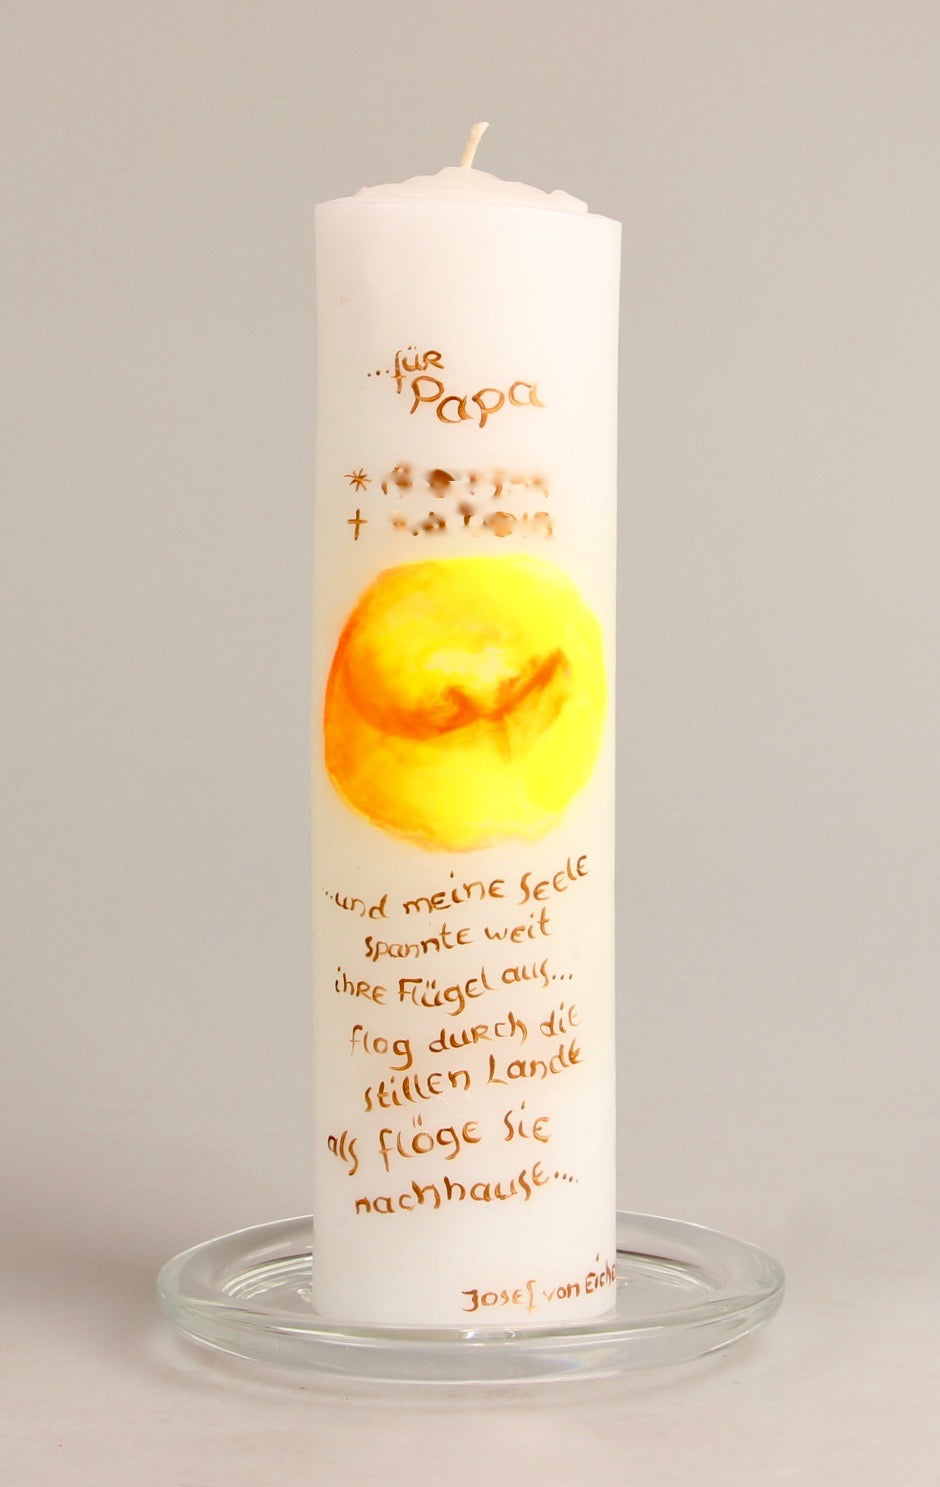 ...für
Papa
*
†
...und meine Seele
spannte weit
ihre Flügel aus...
flog durch die
stillen Lande
als flöge sie
nachhause....
Josef von Eiche